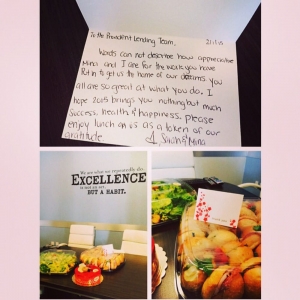 To the Provident Lending Team,
Words can not describe how appreciative
Mina and I are for the work you have
Put in to get us the home of our dreams you
all are so great at what you do. I
hope 2015 brings you nothing but much
success, health & happiness, please
enjoy lunch on us as a token of our
gratitude.
We are what we repeatedly do.
EXCELLENCE
is not an act,
BUT A HABIT.